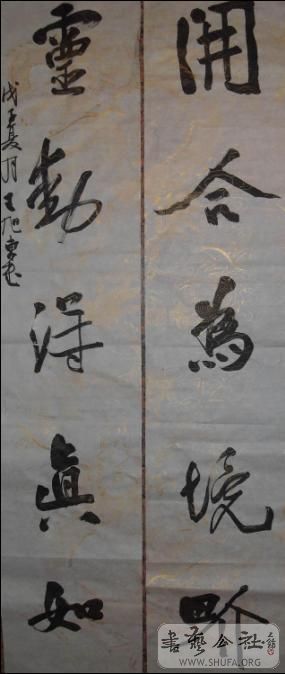 開合為境界
靈動得真如
戊子夏月王旭東书
書藝公社
WWW.SHUFA.ORG